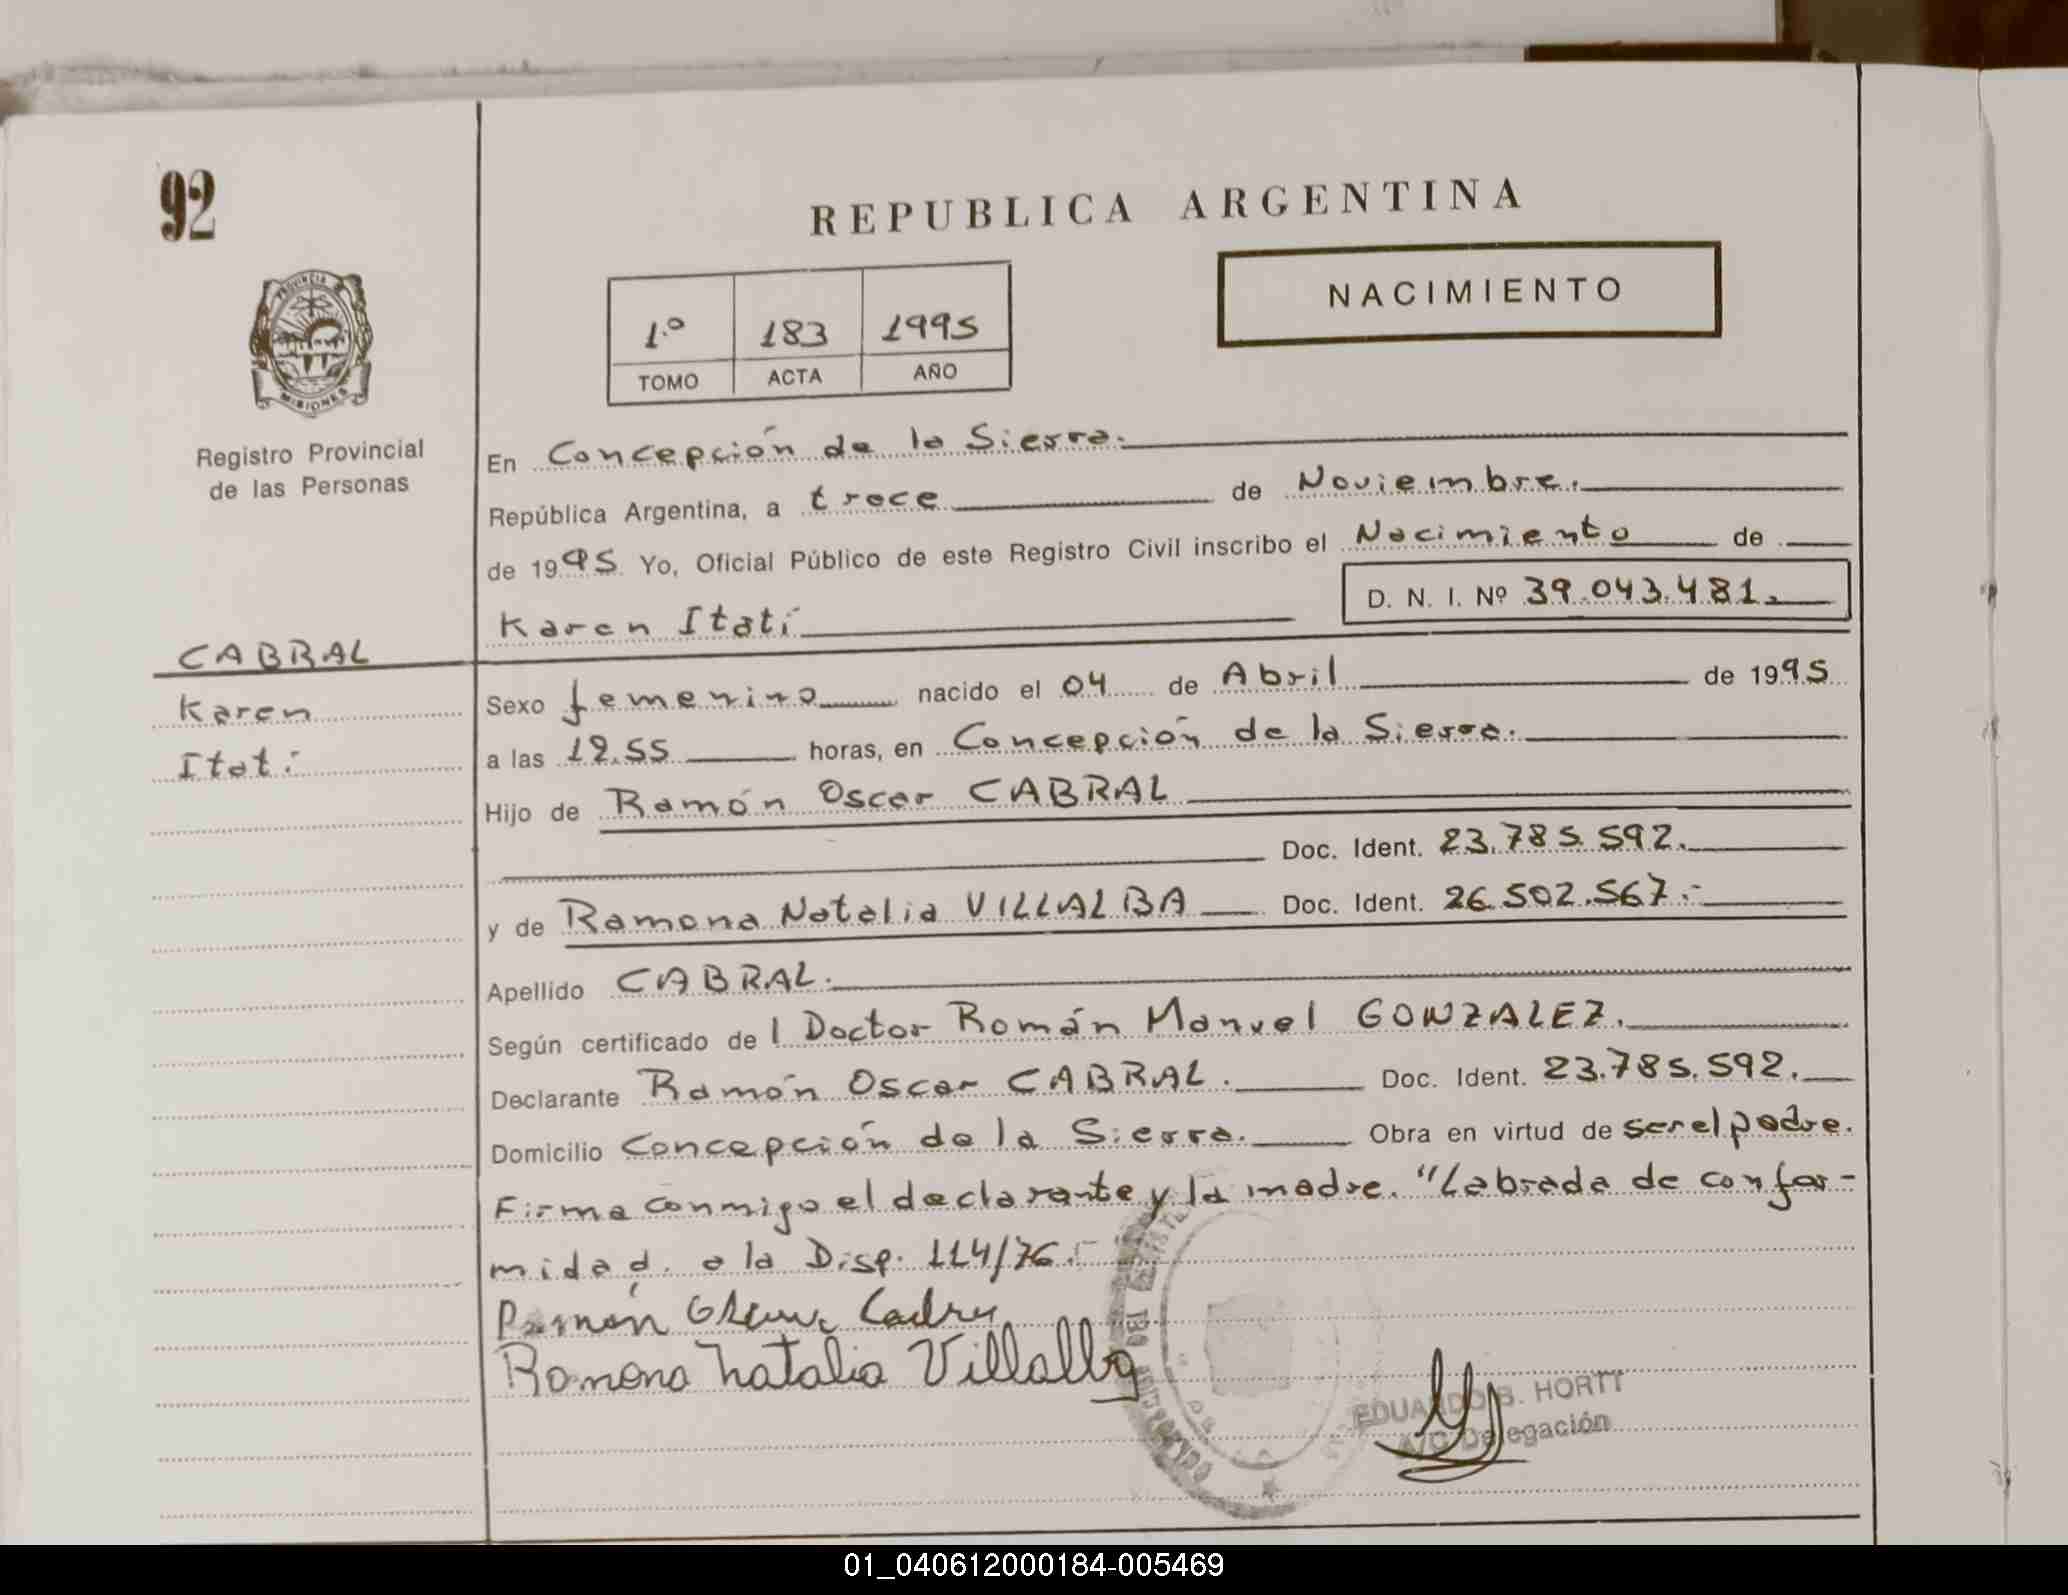 92
REPUBLICA ARGENTINA
NACIMIENTO
1.º 183 1995
TOMO ACTA AÑO
PROVINCIA DE
MISIONES
Registro Provincial
de las Personas
En Concepción de la Sierra.
República Argentina, a trece de Noviembre.
de 1995 Yo, Oficial Público de este Registro Civil inscribo el Nacimiento de
D. N. I. Nº 39.043.481.
Karen Itatí
CABRAL
Karen
Itatí
Sexo femenino nacido el 04 de Abril de 1995
a las 12.55 horas, en Concepción de la Sierra.
Hijo de Ramón Oscar CABRAL
Doc. Ident. 23.785.592.
y de Ramona Natalia VILLALBA Doc. Ident. 26.502.567.-
Apellido CABRAL.
Según certificado de l Doctor Román Manuel GONZALEZ.
Declarante Ramón Oscar CABRAL. Doc. Ident. 23.785.592.
Domicilio Concepción de la Sierra. Obra en virtud de ser el padre.
Firma conmigo el declarante y la madre. "Labrada de confor-
midad a la Disp. 114/76.-
Ramón
Ramona Natalia Villalba
EDUARDO B. HORTT
A/C Delegación
01_040612000184-005469